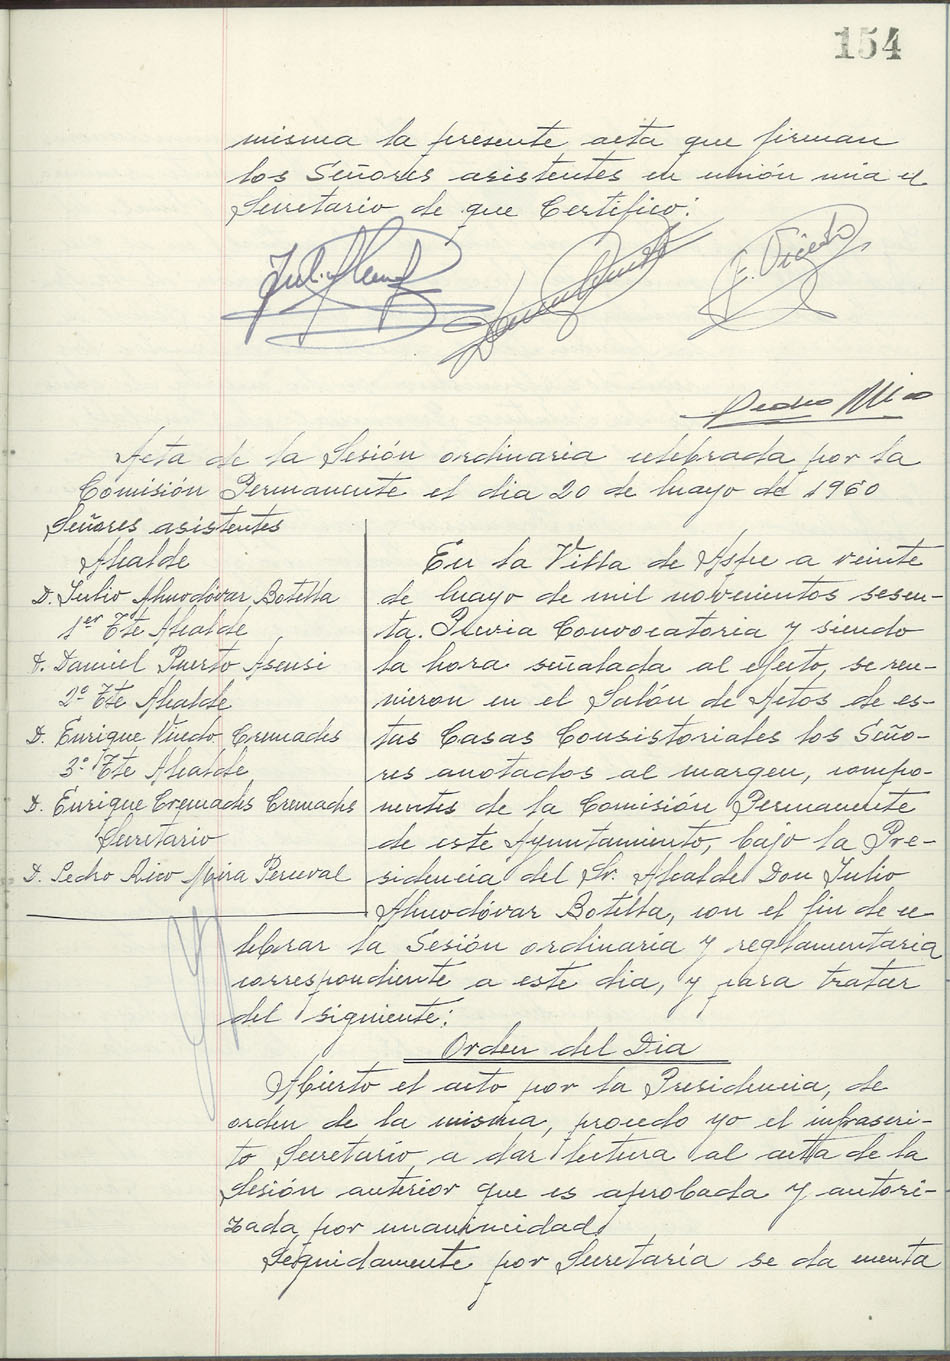 154
misma la presente acta que firman
los Señores asistentes en unión mia el
Secretario de que Certifico:
E. Vicedo
Pedro Rico
Acta de la Sesión ordinaria celebrada por la
Comisión Permanente el dia 20 de Mayo de 1960
Señores asistentes
Alcalde
D. Julio Almodóvar Botella
1er Tte Alcalde
D. Daniel Puerto Asensi
2º Tte Alcalde
D. Enrique Vicedo Cremades
3º Tte Alcalde
D. Enrique Cremades Cremades
Secretario
D. Pedro Rico Mira Perceval
En la Villa de Aspe a veinte
de Mayo de mil novecientos sesen-
ta. Previa Convocatoria y siendo
la hora señalada al efecto, se reu-
nieron en el Salón de Actos de es-
tas Casas Consistoriales los Seño-
res anotados al margen, compo-
nentes de la Comisión Permanente
de este Ayuntamiento, bajo la Pre-
sidencia del Sr. Alcalde Don Julio
Almodóvar Botella, con el fin de ce
lebrar la Sesión ordinaria y reglamentaria
correspondiente a este dia, y para tratar
del siguiente:
Orden del Dia
Abierto el acto por la Presidencia, de
orden de la misma, procedo yo el infrascri-
to Secretario a dar lectura al acta de la
Sesión anterior que es aprobada y autori-
zada por unanimidad
Seguidamente por Secretaría se da cuenta